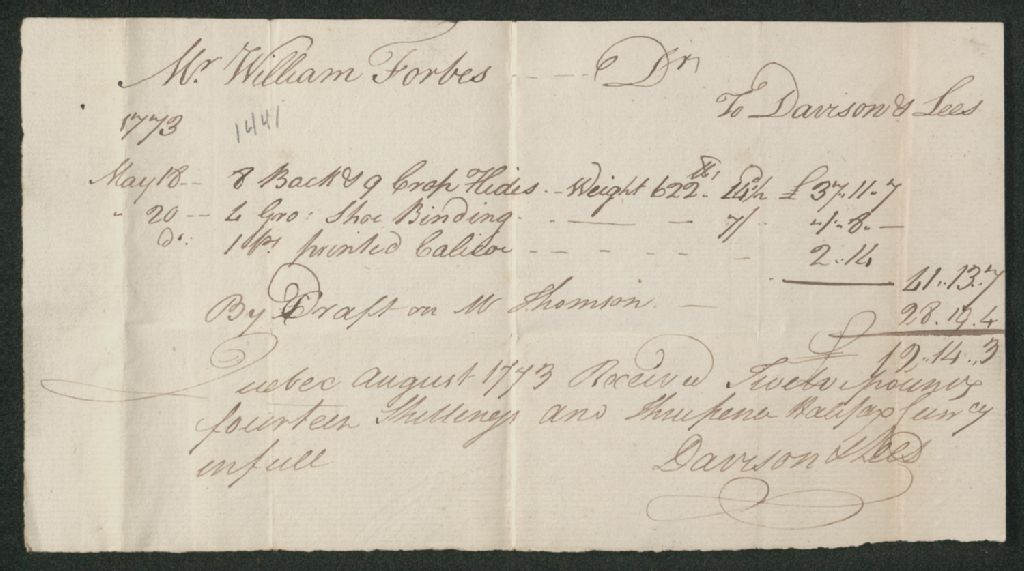 Mr William Forbes - - - - Dr
To Davison & Lees
1773 1441
May 18 - 8 Back & 9 Crop Hides - Weight 622 lb 14½ £ 37.11.7
" 20 - 4 Gro: Shoe Binding - - - 7/ 1.8.-
Do: 1 Ps printed Calicoe - - - - 2.14
41.13.7
By Draft on Mr Thomson - 28.19.4
£ 12.14.3
Quebec August 1773 Received Twelve pounds
fourteen Shillings and Threepence Halifax Curr cy
in full Davison & Lees